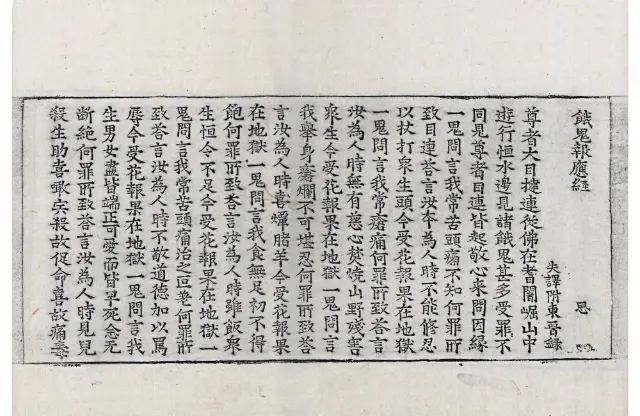 餓鬼報應經 思
失譯附東晉錄
尊者大目揵連從佛在耆闍崛山中
遊行恒水邊見諸餓鬼甚多受罪不
同見尊者目連皆起敬心来問因緣
一鬼問言我常苦頭痛不知何罪所
致目連荅言汝本為人時不能修忍
以杖打衆生頭今受花報果在地獄
一鬼問言我常瘡痛何罪所致荅言
汝為人時無有慈心焚燒山野殘害
衆生今受花報果在地獄一鬼問言
我舉身瘡爛不可堪忍何罪所致荅
言汝為人時喜燖猪羊今受花報果
在地獄一鬼問言我食無足初不得
飽何罪所致荅言汝為人時雖飯衆
生恒令不足今受花報果在地獄一
鬼問言我常苦頭痛治之叵差何罪所
致荅言汝為人時不敬道德加以罵
辱今受花報果在地獄一鬼問言我
生男女盡皆端正可愛而皆早死念无
断絶何罪所致荅言汝為人時見兒
殺生助喜噉宍殺故促命喜故痛毒